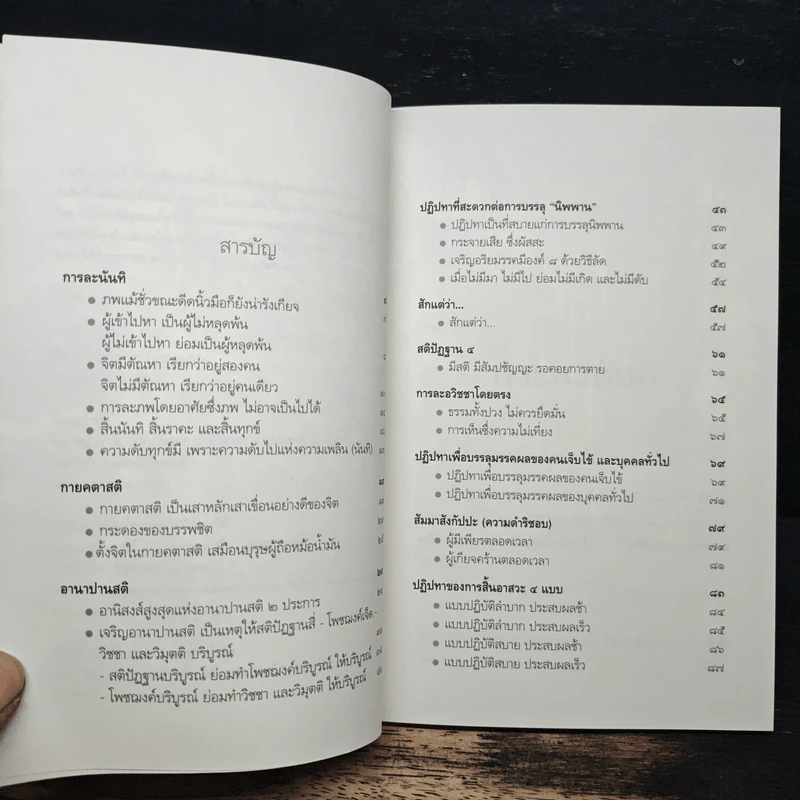 สารบัญ
การละนันทิ
● ภพแม้ชั่วขณะดีดนิ้วมือก็ยังน่ารังเกียจ
● ผู้เข้าไปหา เป็นผู้ไม่หลุดพ้น
ผู้ไม่เข้าไปหา ย่อมเป็นผู้หลุดพ้น
● จิตมีตัณหา เรียกว่าอยู่สองคน
จิตไม่มีตัณหา เรียกว่าอยู่คนเดียว
● การละภพโดยอาศัยซึ่งภพ ไม่อาจเป็นไปได้
● สิ้นนันทิ สิ้นราคะ และสิ้นทุกข์
● ความดับทุกข์มี เพราะความดับไปแห่งความเพลิน (นันทิ)
กายคตาสติ
● กายคตาสติ เป็นเสาหลักเสาเขื่อนอย่างดีของจิต
● กระดองของบรรพชิต
● ตั้งจิตในกายคตาสติ เสมือนบุรุษผู้ถือหม้อน้ำมัน
อานาปานสติ
● อานิสงส์สูงสุดแห่งอานาปานสติ ๒ ประการ
● เจริญอานาปานสติ เป็นเหตุให้สติปัฏฐานสี่ - โพชฌงค์เจ็ด -
วิชชา และวิมุตติ บริบูรณ์
- สติปัฏฐานบริบูรณ์ ย่อมทำโพชฌงค์บริบูรณ์ ให้บริบูรณ์
- โพชฌงค์บริบูรณ์ ย่อมทำวิชชา และวิมุตติ ให้บริบูรณ์
ปฏิปทาที่สะดวกต่อการบรรลุ “นิพพาน” ๔๓
● ปฏิปทาเป็นที่สบายแก่การบรรลุนิพพาน ๔๓
● กระจายเสีย ซึ่งผัสสะ ๔๙
● เจริญอริยมรรคมีองค์ ๘ ด้วยวิธีลัด ๕๒
● เมื่อไม่มีมา ไม่มีไป ย่อมไม่มีเกิด และไม่มีดับ ๕๔
สักแต่ว่า... ๕๗
● สักแต่ว่า... ๕๗
สติปัฏฐาน ๔ ๖๑
● มีสติ มีสัมปชัญญะ รอคอยการตาย ๖๑
การละอวิชชาโดยตรง ๖๕
● ธรรมทั้งปวง ไม่ควรยึดมั่น ๖๕
● การเห็นซึ่งความไม่เที่ยง ๖๗
ปฏิปทาเพื่อบรรลุมรรคผลของคนเจ็บไข้ และบุคคลทั่วไป ๖๙
● ปฏิปทาเพื่อบรรลุมรรคผลของคนเจ็บไข้ ๖๙
● ปฏิปทาเพื่อบรรลุมรรคผลของบุคคลทั่วไป ๗๑
สัมมาสังกัปปะ (ความดำริชอบ) ๗๙
● ผู้มีเพียรตลอดเวลา ๗๙
● ผู้เกียจคร้านตลอดเวลา ๘๑
ปฏิปทาของการสิ้นอาสวะ ๔ แบบ ๘๓
● แบบปฏิบัติลำบาก ประสบผลช้า ๘๔
● แบบปฏิบัติลำบาก ประสบผลเร็ว ๘๕
● แบบปฏิบัติสบาย ประสบผลช้า ๘๖
● แบบปฏิบัติสบาย ประสบผลเร็ว ๘๗